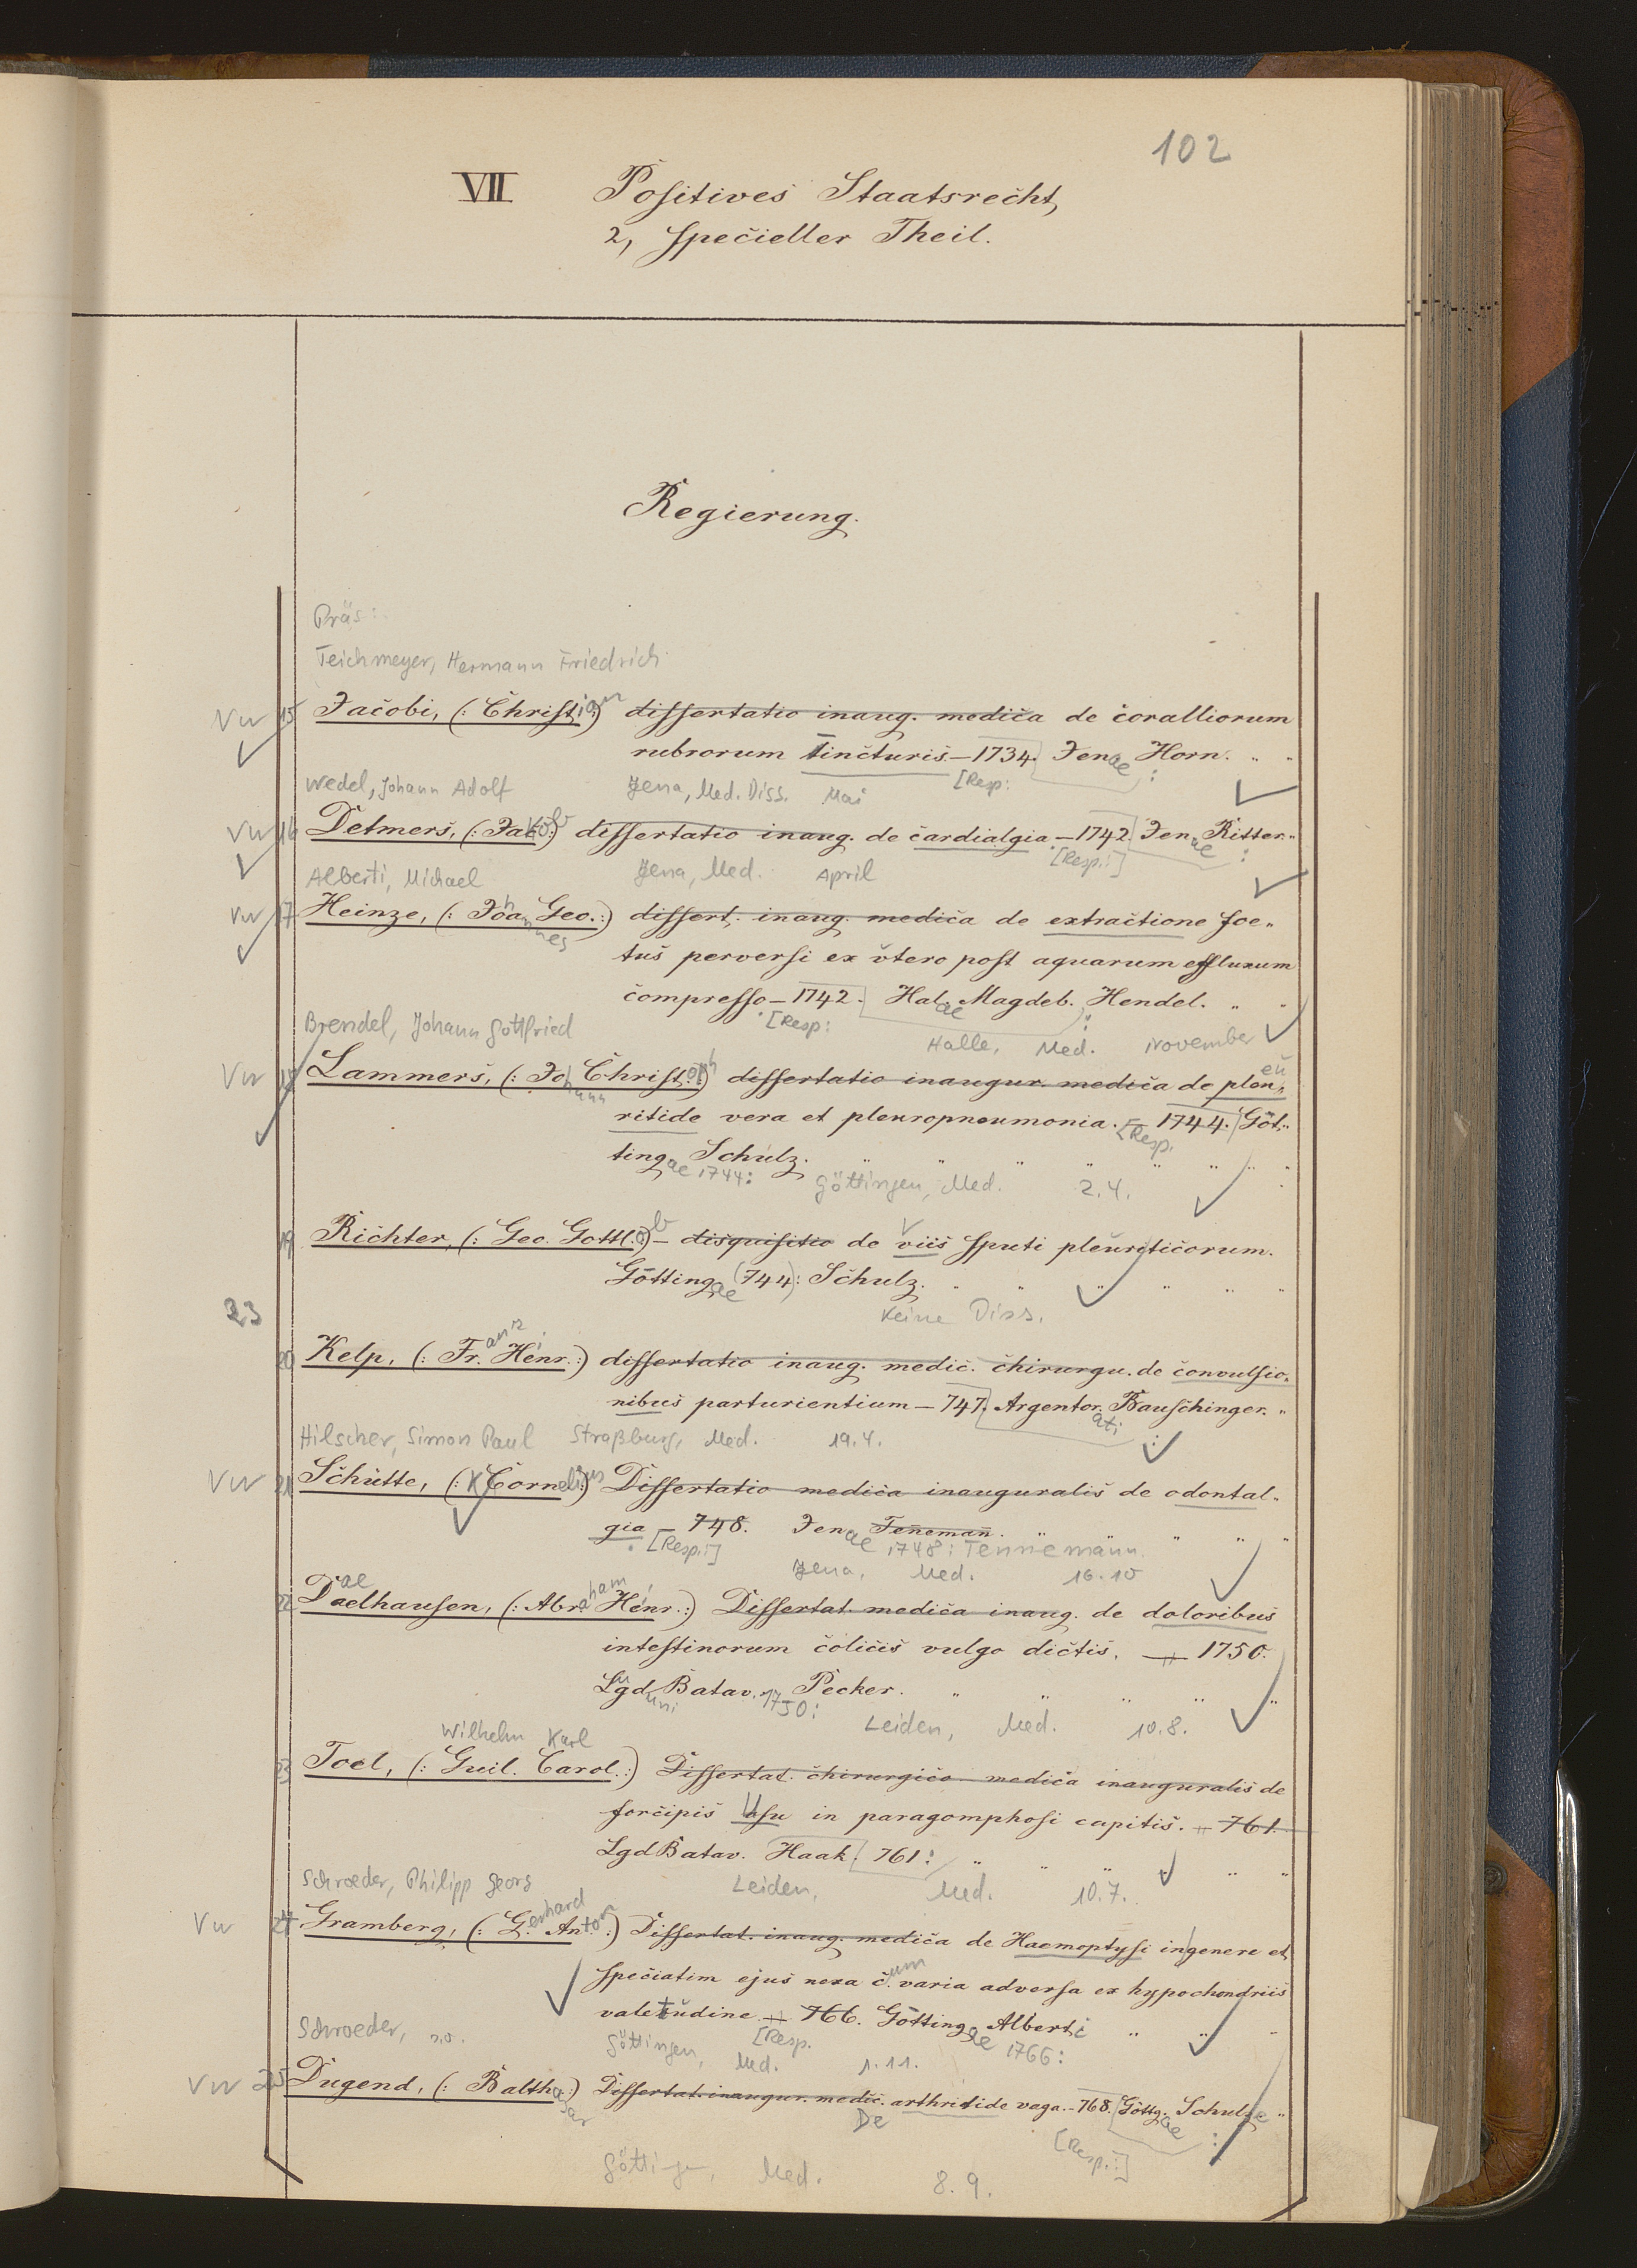 102
VII Positives Staatsrecht,
2, specieller Theil.
Regierung.
Präs:
Teichmeyer, Hermann Friedrich
Vw 15 Jacobi, (: Christian :) dissertatio inaug. medica de coralliorum
rubrorum Tincturis. – 1734. Jenae Horn. „ „
[Resp:
Wedel, Johann Adolf Jena, Med. Diss. Mai
Vw 16 Detmers, (: Jakob :) dissertatio inaug. de cardialgia. – 1742. Jenae : Ritter. „
[Resp.:]
Alberti, Michael Jena, Med. April
Vw 17 Heinze, (: Johannes Geo. :) dissert. inaug. medica de extractione foe„
tus perversi ex utero post aquarum effluxum
compresso. – 1742. Halae Magdeb.: Hendel. „ „
[Resp:
Brendel, Johann Gottfried Halle, Med. November
Vw 18 Lammers, (: Johann Christoph :) dissertatio inaugur. medica de pleu„
ritide vera et pleuropneumonia. – 1744. Göt„
[Resp.
tingae 1744: Schulz. „ „ „ „ „ „ „ „
Göttingen, Med. 2.4.
19 Richter, (: Geo. Gottlob :) – disquisitio de viis sputi pleuriticorum.
Göttingae (744): Schulz. „ „ „ „ „ „
Keine Diss.
23
20 Kelp, (: Franz Heinr. :) dissertatio inaug. medic. chirurgu. de convulsio„
nibus parturientium – 747. Argentorati : Bauschinger. „
Hilscher, Simon Paul Straßburg, Med. 19.4.
Vw 21 Schütte, (: Cornelius :) Dissertatio medica inauguralis de odontal„
gia. – 748. Jenae 1748: Tennemann. „ „ „ „ „
[Resp.:]
Jena, Med. 16.10
22 Daelhausen, (: Abraham Heinr. :) Dissertat. medica inaug. de doloribus
intestinorum colicis vulgo dictis. – 1750.
Lugduni Batav. 1750: Pecker. „ „ „ „ „
Leiden, Med. 10.8.
Wilhelm Karl
23 Toel, (: Guil. Carol. :) Dissertat. chirurgico medica inauguralis de
forcipis Usu in paragomphosi capitis. – 761.
Lgd Batav. Haak. 761: „ „ „ „ „
Schroeder, Philipp Georg Leiden, Med. 10.7.
Vw 24 Gramberg, (: Gerhard Anton :) Dissertat. inaug. medica de Haemoptysi in genere et
speciatim ejus nexa cum varia adversa ex hypochondriis
valetudine – 766. Göttingae 1766: Alberti „ „ „
[Resp.
Schroeder, s.o. Göttingen, Med. 1.11.
Vw 25 Dugend, (: Balthasar :) Dissertat. inaugur. medic. De arthritide vaga. – 768. Göttgae : Schulze „
[Resp.:]
Göttingen, Med. 8.9.